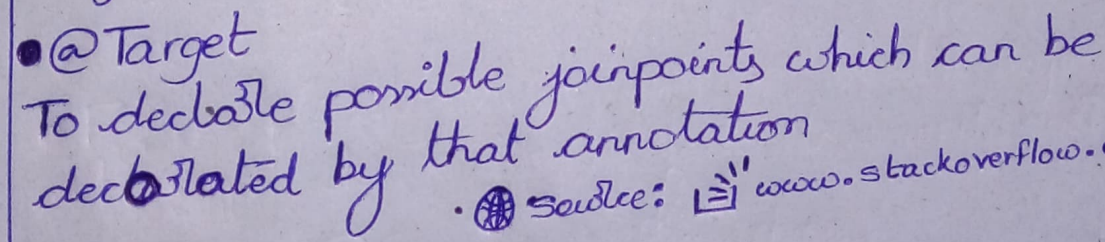 • @Target
To declare possible joinpoints which can be
decorated by that annotation
. Source: www.stackoverflow.